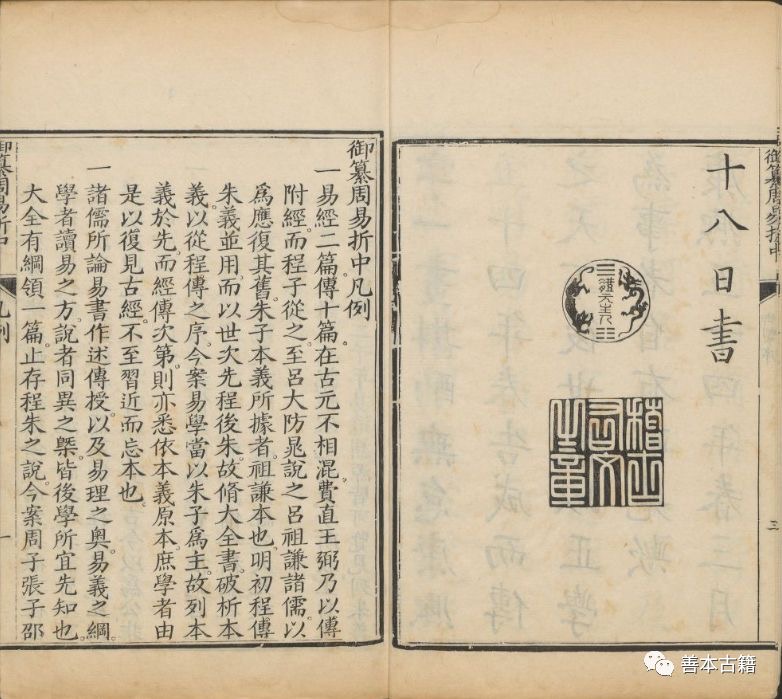 御纂周易折中
三
十八日書
體元主人
稽古右文之章
御纂周易折中凡例
一易經二篇傳十篇在古元不相混費直王弼乃以傳
附經而程子從之至呂大防晁說之呂祖謙諸儒以
爲應復其舊朱子本義所據者祖謙本也明初程傳
朱義並用而以世次先程後朱故脩大全書破析本
義以從程傳之序今案易學當以朱子爲主故列本
義於先而經傳次第則亦悉依本義原本庶學者由
是以復見古經不至習近而忘本也
一諸儒所論易書作述傳授以及易理之奧易義之綱
學者讀易之方說者同異之槩皆後學所宜先知也
大全有綱領一篇止存程朱之說今案周子張子邵
御纂周易折中
凡例
一
善本古籍